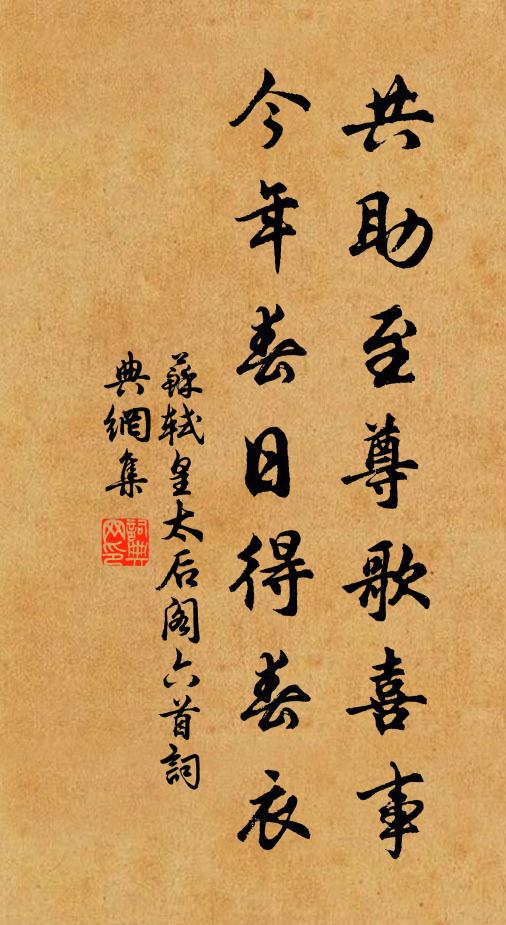 共助至尊歌喜事
今年春日得春衣
蘇軾皇太后閣六首詞
典網集
詞典网印